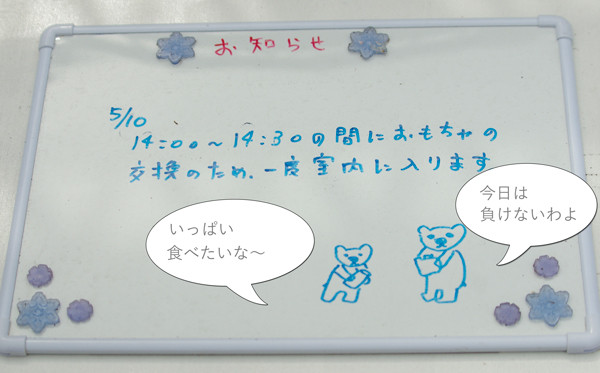 お知らせ
5/10
14:00～14:30の間におもちゃの
交換のため、一度室内に入ります
いっぱい
食べたいな～
今日は
負けないわよ